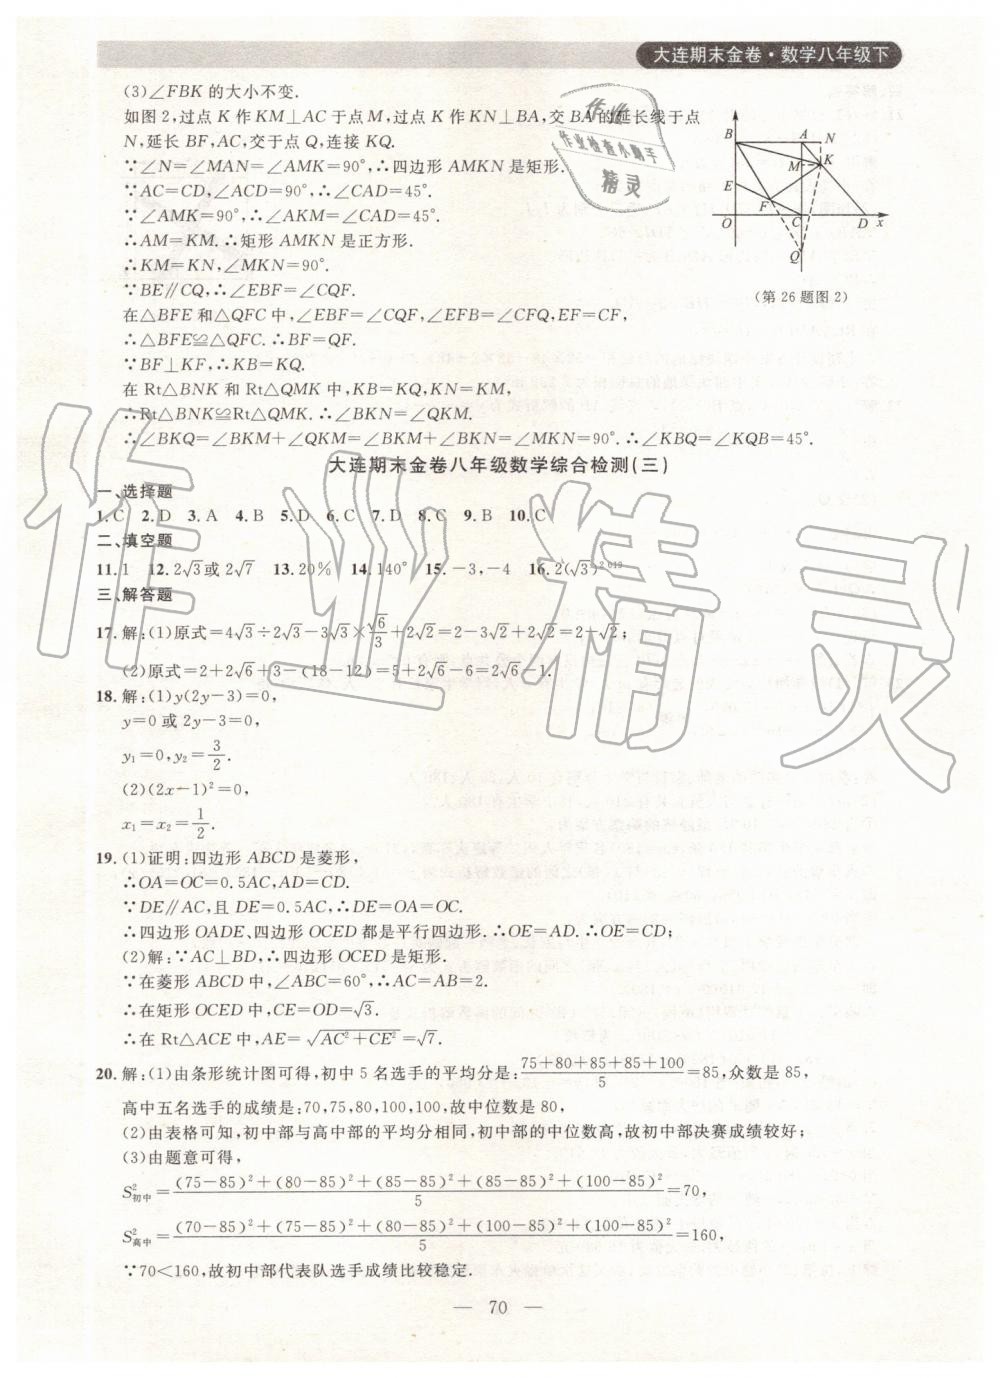 大连期末金卷·数学八年级下
(3)∠FBK 的大小不变.
如图 2,过点 K 作 KM⊥AC 于点 M,过点 K 作 KN⊥BA,交 BA 的延长线于点
N,延长 BF,AC,交于点 Q,连接 KQ.
∵∠N=∠MAN=∠AMK=90°,∴四边形 AMKN 是矩形.
∵AC=CD,∠ACD=90°,∴∠CAD=45°.
∵∠AMK=90°,∴∠AKM=∠CAD=45°.
∴AM=KM.∴矩形 AMKN 是正方形.
∴KM=KN,∠MKN=90°.
∵BE∥CQ,∴∠EBF=∠CQF.
在△BFE 和△QFC 中,∠EBF=∠CQF,∠EFB=∠CFQ,EF=CF,
∴△BFE≌△QFC.∴BF=QF.
∵BF⊥KF,∴KB=KQ.
在 Rt△BNK 和 Rt△QMK 中,KB=KQ,KN=KM,
∴Rt△BNK≌Rt△QMK.∴∠BKN=∠QKM.
∴∠BKQ=∠BKM+∠QKM=∠BKM+∠BKN=∠MKN=90°.∴∠KBQ=∠KQB=45°.
y
B A N
M K
E F
O C D x
Q
(第 26 题图 2)
作业
作业检查小助手
精灵
大连期末金卷八年级数学综合检测(三)
一、选择题
1.C 2.D 3.A 4.B 5.D 6.C 7.D 8.C 9.B 10.C
二、填空题
11.1 12.2√3或2√7 13.20% 14.140° 15.-3,-4 16.2(√3)^2 019
三、解答题
17.解:(1)原式=4√3÷2√3-3√3×√6/3+2√2=2-3√2+2√2=2-√2;
(2)原式=2+2√6+3-(18-12)=5+2√6-6=2√6-1.
18.解:(1)y(2y-3)=0,
y=0 或 2y-3=0,
y₁=0,y₂=3/2.
(2)(2x-1)²=0,
x₁=x₂=1/2.
19.(1)证明:四边形 ABCD 是菱形,
∴OA=OC=0.5AC,AD=CD.
∵DE∥AC,且 DE=0.5AC,∴DE=OA=OC.
∴四边形 OADE、四边形 OCED 都是平行四边形.∴OE=AD.∴OE=CD;
(2)解:∵AC⊥BD,∴四边形 OCED 是矩形.
∵在菱形 ABCD 中,∠ABC=60°,∴AC=AB=2.
∴在矩形 OCED 中,CE=OD=√3.
∴在 Rt△ACE 中,AE=√(AC²+CE²)=√7.
20.解:(1)由条形统计图可得,初中 5 名选手的平均分是:(75+80+85+85+100)/5=85,众数是 85,
高中五名选手的成绩是:70,75,80,100,100,故中位数是 80,
(2)由表格可知,初中部与高中部的平均分相同,初中部的中位数高,故初中部决赛成绩较好;
(3)由题意可得,
S²初中=((75-85)²+(80-85)²+(85-85)²+(85-85)²+(100-85)²)/5=70,
S²高中=((70-85)²+(75-85)²+(80-85)²+(100-85)²+(100-85)²)/5=160,
∵70<160,故初中部代表队选手成绩比较稳定.
— 70 —
作业精灵